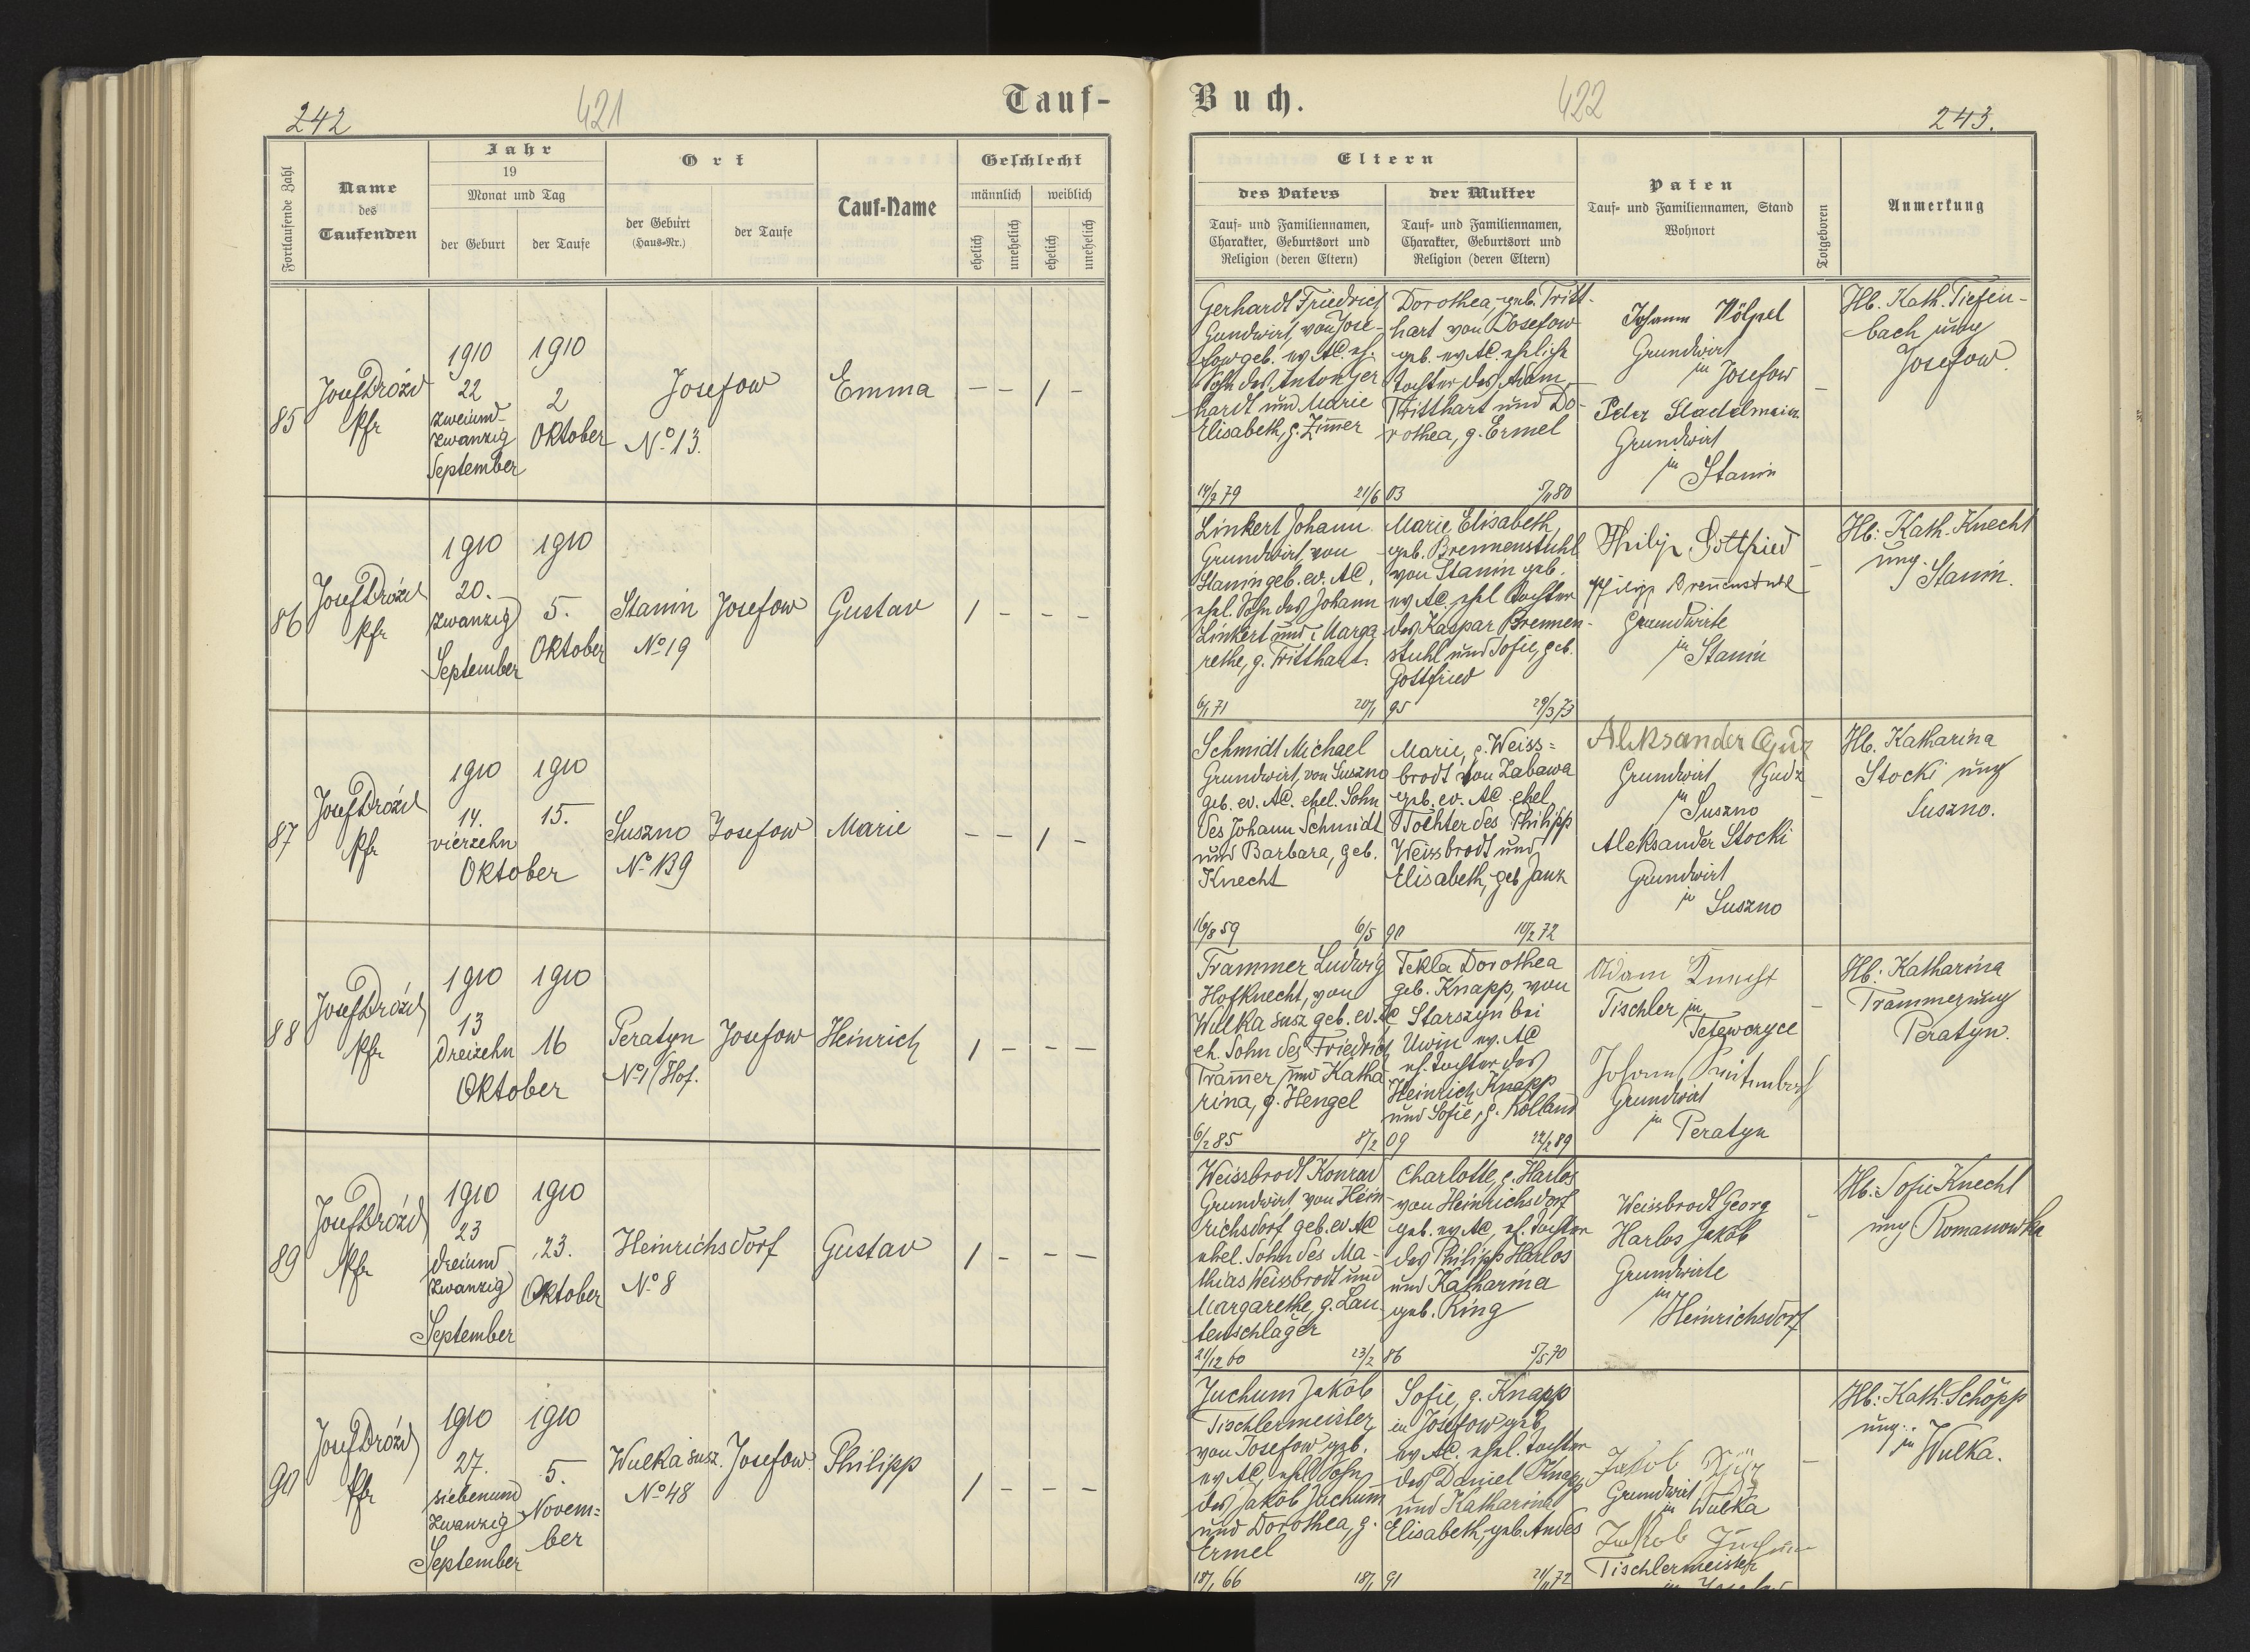 242
421
Tauf-
Fortlaufende Zahl
Name
des
Taufenden
Jahr
19
Monat und Tag
der Geburt
der Taufe
Ort
der Geburt
(Haus-Nr.)
der Taufe
Tauf-Name
Geschlecht
männlich
weiblich
ehelich
unehelich
ehelich
unehelich
85
Josef Drózd
Pfr
1910
22
zweiund-
zwanzig
September
1910
2
Oktober
Josefow
No 13.
Emma
– – 1 –
86
Josef Drózd
Pfr
1910
20.
zwanzig
September
1910
5.
Oktober
Stanin
No 19
Josefow
Gustav
1 – – –
87
Josef Drózd
Pfr
1910
14.
vierzehn
Oktober
1910
15.
Suszno
No 139
Josefow
Marie
– – 1 –
88
Josef Drózd
Pfr
1910
13
dreizehn
Oktober
1910
16
Peratyn
No 1 (Hof.
Josefow
Heinrich
1 – – –
89
Josef Drózd
Pfr
1910
23
dreiund
zwanzig
September
1910
23.
Oktober
Heinrichsdorf
No 8
Gustav
1 – – –
90
Josef Drózd
Pfr
1910
27.
siebenund
zwanzig
September
1910
5.
Novem=
ber
Wulka susz.
No 48
Josefow
Philipp
1 – – –
Buch.
422
243.
Eltern
des Vaters
Tauf- und Familiennamen,
Charakter, Geburtsort und
Religion (deren Eltern)
der Mutter
Tauf- und Familiennamen,
Charakter, Geburtsort und
Religion (deren Eltern)
Paten
Tauf- und Familiennamen, Stand
Wohnort
Totgeboren
Anmerkung
Gerhardt Friedrich
Grundwirt, von Jose-
fow geb. ev. AC. eh.
Sohn des Anton Ger
hardt und Marie
Elisabeth, g. Zimer
79
21/6 03
Dorothea, geb. Tritt-
hart von Josefow
geb. ev AC. eheliche
Tochter des Adam
Tritthart und Do-
rothea, g. Ermel
80
Johann Wölpel
Grundwirt
in Josefow
Peter Stadelmeier
Grundwirt
in Stanin
–
Hb. Kath. Tiefen-
bach ung
Josefow.
Linkert Johann
Grundwirt, von
Stanin geb. ev. AC,
ehel. Sohn des Johann
Linkert und Marga
rethe, g. Tritthart.
6/1 71
20/1 95
Marie Elisabeth,
geb. Brennenstuhl
von Stanin geb.
ev AC. ehel Tochter
des Kaspar Brennen-
stuhl und Sofie, geb.
Gottfried
29/3 73
Philip Gottfried
Philipp Brenenstuhl
Grundwirte
in Stanin
–
Hb: Kath. Knecht
ung. Stanin.
Schmidt Michael
Grundwirt, von Suszno
geb. ev. AC. ehel. Sohn
des Johann Schmidt
und Barbara, geb.
Knecht
16/8 59
6/5 90
Marie, g. Weiss=
brodt von Zabawa
geb. ev. AC ehel.
Tochter des Philipp
Weissbrodt und
Elisabeth, geb Janz
10/2 72
Aleksander Gudz
Grundwirt Gudz
in Suszno
Aleksander Stocki
Grundwirt
in Suszno
–
Hb. Katharina
Stocki ung
Suszno.
Trammer Ludwig
Hofknecht, von
Wulka susz geb. ev. AC
eh. Sohn des Friedrich
Tramer und Katha
rina, g. Hengel
6/2 85
8/2 09
Tekla Dorothea
geb. Knapp, von
Starszyn bei
Uwin ev. AC
eh. Tochter des
Heinrich Knapp
und Sofie, g. Rolland
22/2 89
Adam
Tischler in
Tetewczyce
Johann
Grundwirt
in Peratyn
–
Hb: Katharina
Trammer ung
Peratyn.
Weissbrodt Konrad
Grundwirt, von Hein-
richsdorf geb. ev AC
ehel. Sohn des Ma-
thias Weissbrodt und
Margarethe, g. Lau
tenschläger
21/12 60
23/2 86
Charlotte, g. Harlos
von Heinrichsdorf
geb. ev AC, eh. Tochter
des Philipp Harlos
und Katharina
geb. Ring
5/5 70
Weissbrodt Georg
Harlos Jakob
Grundwirte
in
Heinrichsdorf
–
Hb: Sofie Knecht
ung Romanowka
Juchum Jakob
Tischlermeister
von Josefow geb.
ev AC, ehel Sohn
des Jakob Juchum
und Dorothea, g.
Ermel
18/1 66
18/1 91
Sofie, g. Knapp
in Josefow geb.
ev AC. ehel. Tochter
des Daniel Knapp
und Katharina
Elisabeth, geb. Andes
21/11 72
Jakob
Grundwirt
in Wulka
Jakob Juchum
Tischlermeister
–
Hb: Kath. Schöpp
ung. in Wulka.